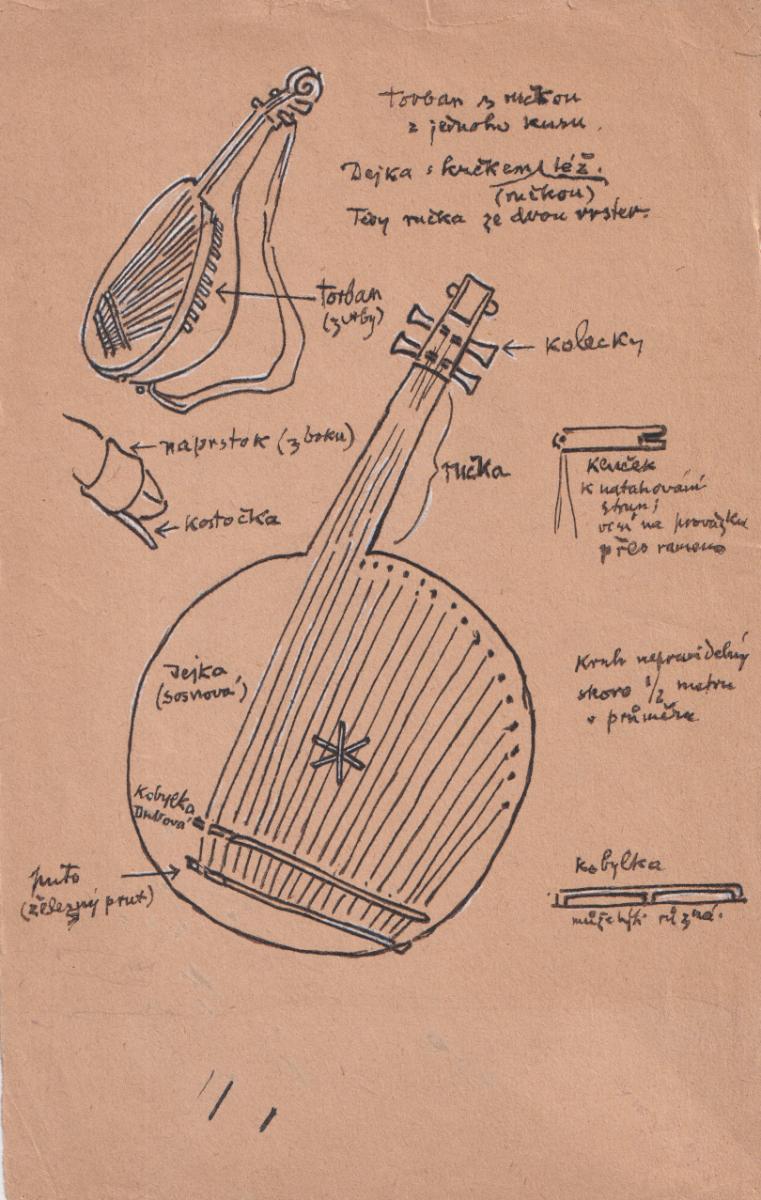 Torban s ručkou
z jednoho kusu.
Dejka s krčkem též.
(ručkou)
Tedy ručka ze dvou vrstev.
torban
(z vrby)
kolečky
naprstok (z boku)
ručka
kostočka
Klíček
k natahování
strun;
visí na provázku
přes rameno
Dejka
(sosnová)
Kruh nepravidelný
skoro 1/2 metru
v průměru
Kobylka
Dubová
puto
(železný prut)
kobylka
může být různá.